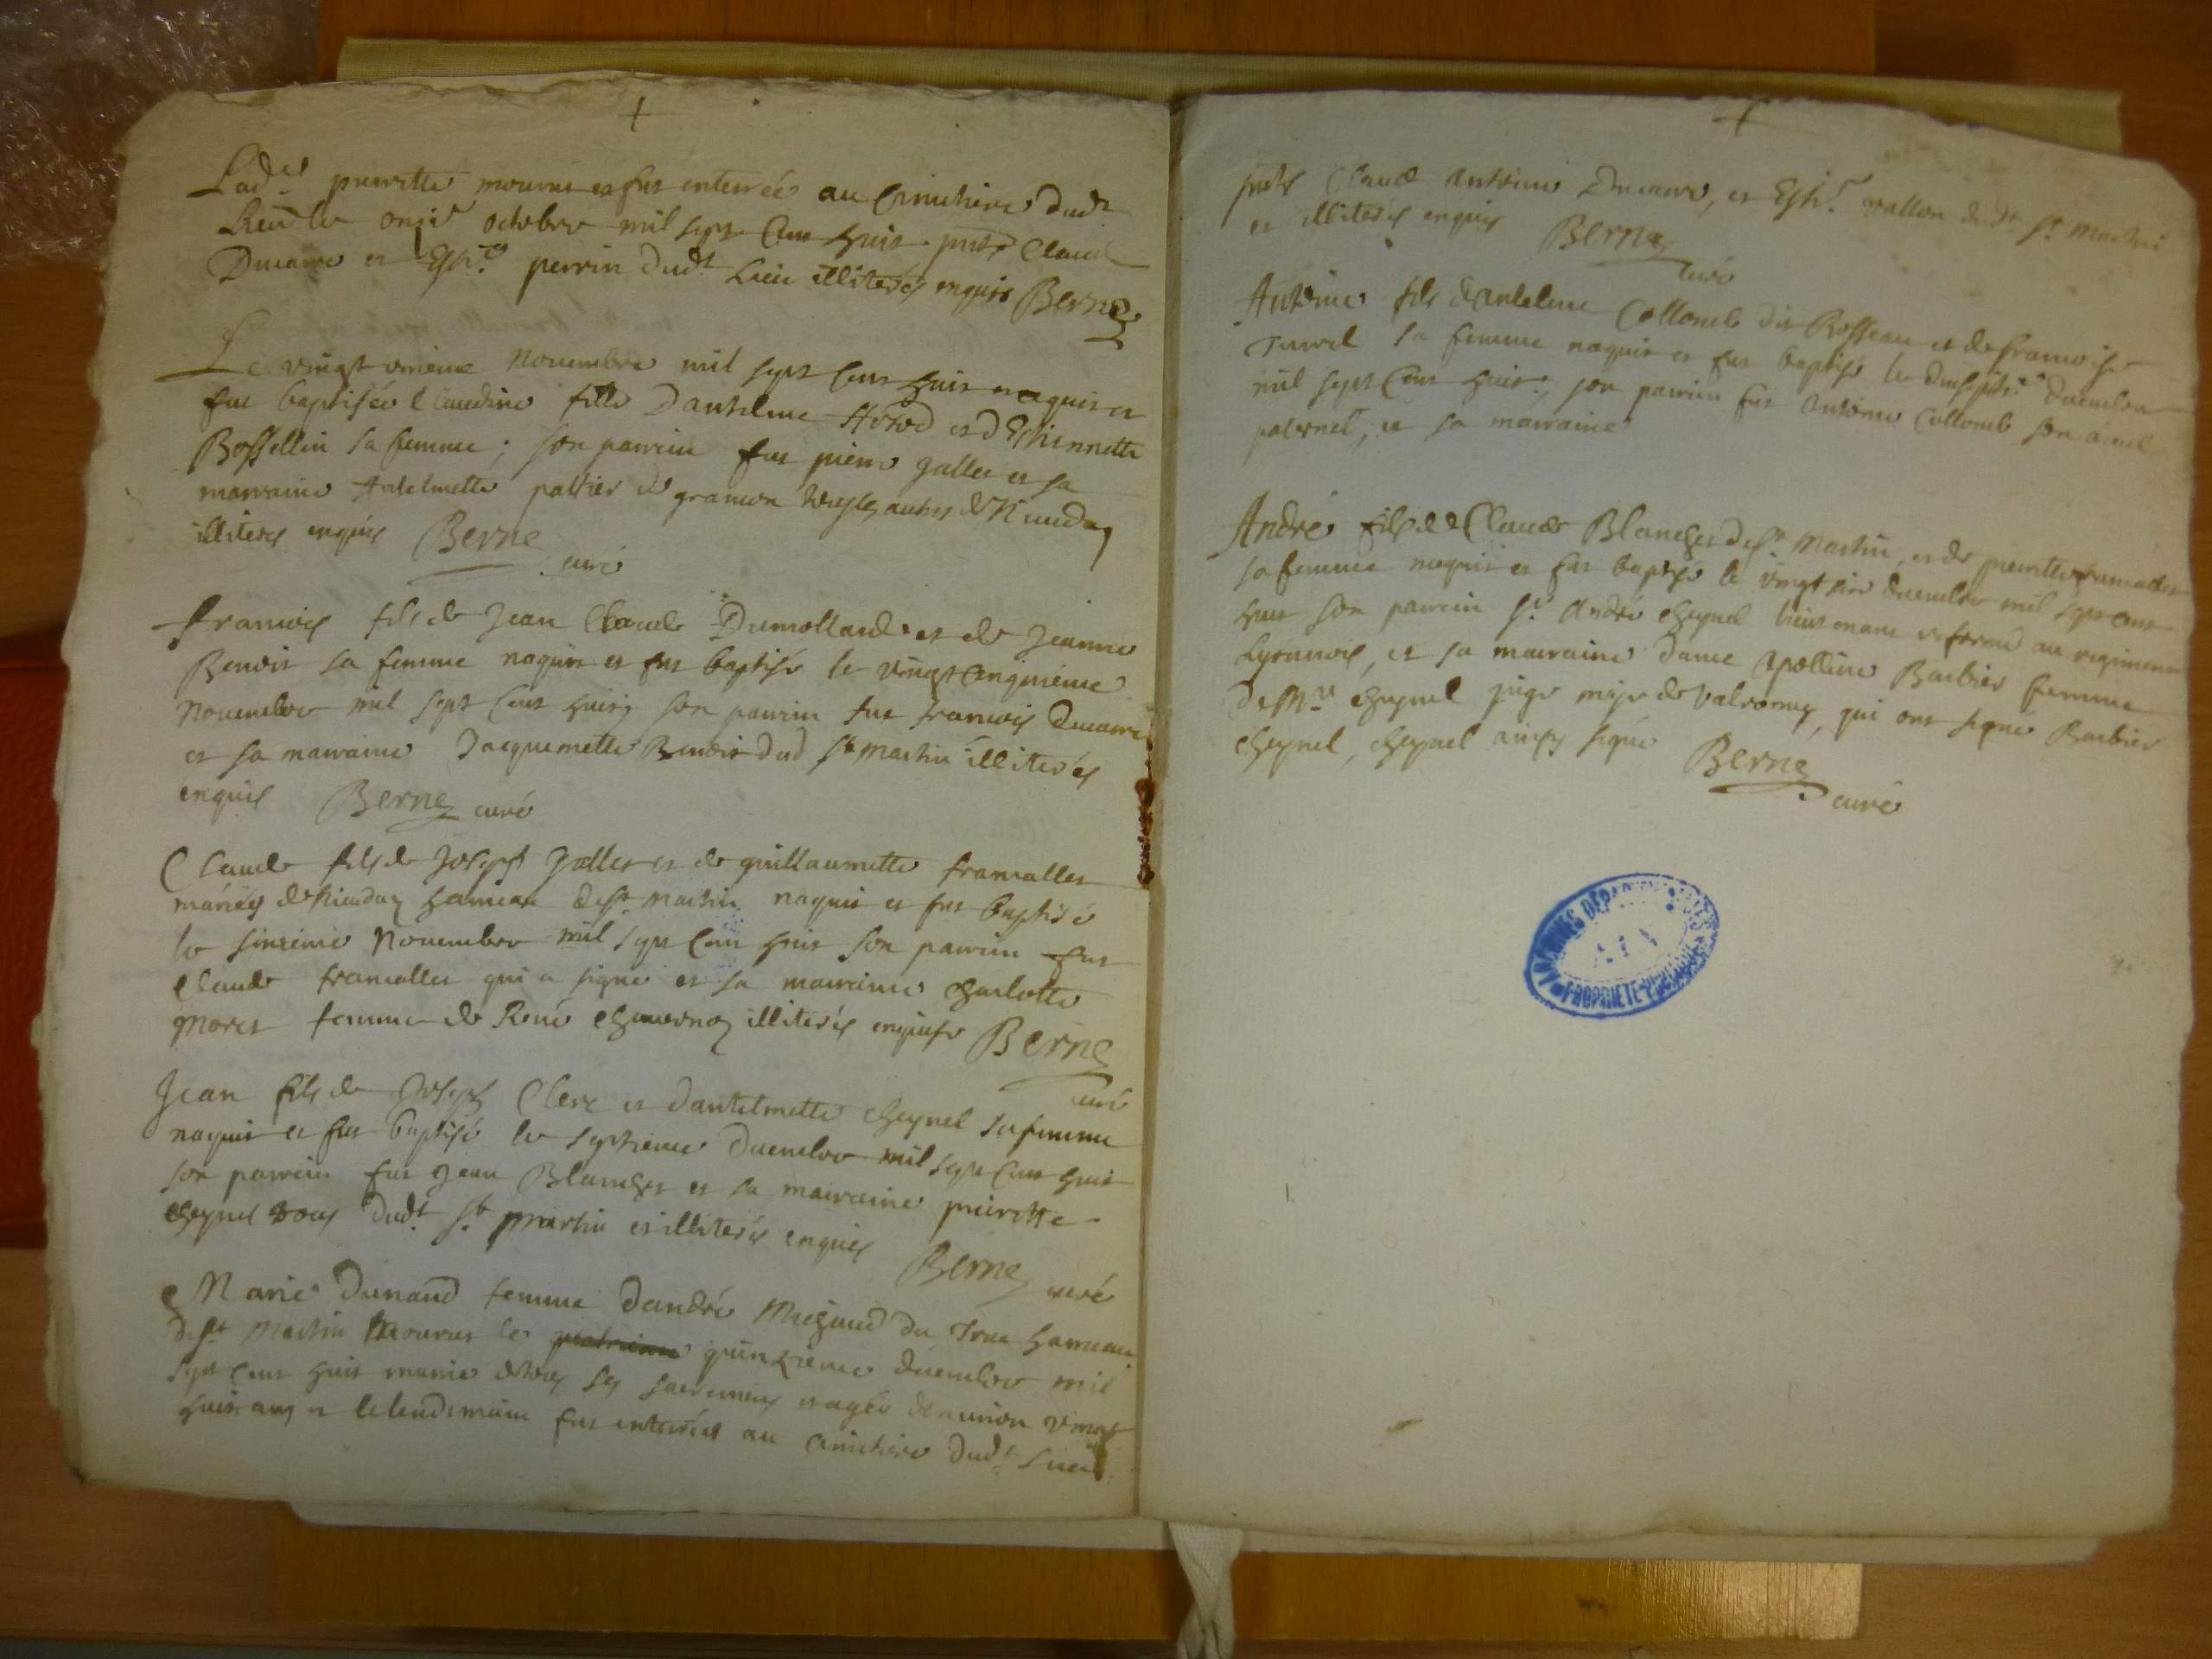 Lad.e pierrette mourut et fut enterrée au Cimithiere dudt
Lieu le onzie octobre mil sept Cens huit . pnts Claude
Ducarre et Esti.e perrin dudt Lieu illiterés enquis Berne
Le vingt unieme Novembre mil sept Cens huit naquit et
fut baptisée Claudine fille D'antelme et d'Ethiennette
Bossellin sa femme ; son parrin fut pierre Jallet et sa
marraine Antelmette paltier de gramon illiterés enquis Berne
curé
francois fils de Jean Claude Dumolland et de Jeanne
Benoit sa femme naquit et fut baptisé le vingt Cinquieme
Novembre mil sept Cens huit, son parrin fut francois Ducarre
et sa marraine Jacquemette Benoit dud St martin illiterés
enquis Berne curé
Claude fils de Joseph Jallet et de guillaumette francallet
mariés de hameau de St martin naquit et fut baptisé
le Novembre mil sept Cens huit son parrin fut
Claude francallet qui a signé et sa marraine charlotte
moret femme de René illiterés enquis Berne
curé
Jean fils de Joseph Clerc et dantelmette cheynel sa femme
naquit et fut baptisé le septieme decembre mil sept Cens huit
son parrin fut Jean Blanchet et sa marraine pierrette
cheynel tous dudt St martin et illiterés enquis Berne curé
Marie Dunand femme dandré du hameau
de St martin mourut le quinzieme decembre mil
sept Cens huit munie de tous ses sacremens et agée denviron vingt
huit ans et le lendemain fut enterrée au Cimithiere dudt Lieu
pnts Claude antoine Ducarre, et Esti.e vallon dudt St martin
et illiterés enquis Berne
curé
Antoine fils d'antelme Collomb dit Rosseau et de francoise
sa femme naquit et fut baptisé le decembre
mil sept Cens huit, son parrin fut antoine Collomb son aieul
paternel, et sa marraine
André fils de Claude Blanchet de St martin, et de pierrette francallet
sa femme naquit et fut baptisé le vingt decembre mil sept cens
huit son parrin Sr andré cheynel lieutenant reformé au regiment
Lyonnois, et sa marraine dame apolline Barbier femme
de Mre cheynel juge maje de valromey, qui ont signé Barbier
cheynel, cheynel ainsy signé Berne
curé
ARCHIVES
AIN
PROPRIETE PUBLIQUE